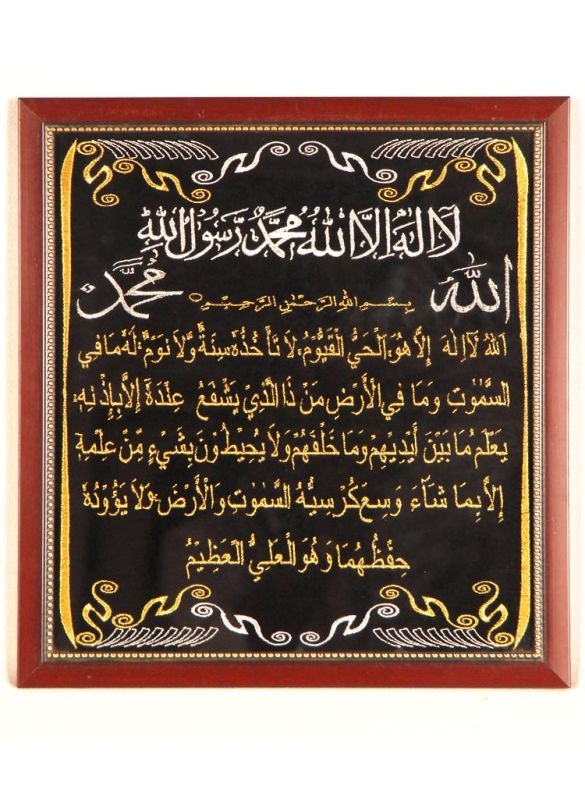 لا اله الا الله محمد رسول الله
الله
محمد
بسم الله الرحمن الرحيم
اَللهُ لَآ اِلٰهَ اِلَّا هُوَ اَلْحَيُّ الْقَيُّوْمُ لَا تَأْخُذُهٗ سِنَةٌ وَّلَا نَوْمٌ لَهٗ مَا فِي
السَّمٰوٰتِ وَمَا فِي الْاَرْضِ مَنْ ذَا الَّذِيْ يَشْفَعُ عِنْدَهٗ اِلَّا بِاِذْنِهٖ
يَعْلَمُ مَا بَيْنَ اَيْدِيْهِمْ وَمَا خَلْفَهُمْ وَلَا يُحِيْطُوْنَ بِشَيْءٍ مِّنْ عِلْمِهٖ
اِلَّا بِمَا شَآءَ وَسِعَ كُرْسِيُّهُ السَّمٰوٰتِ وَالْاَرْضَ وَلَا يَؤُوْدُهٗ
حِفْظُهُمَا وَهُوَ الْعَلِيُّ الْعَظِيْمُ